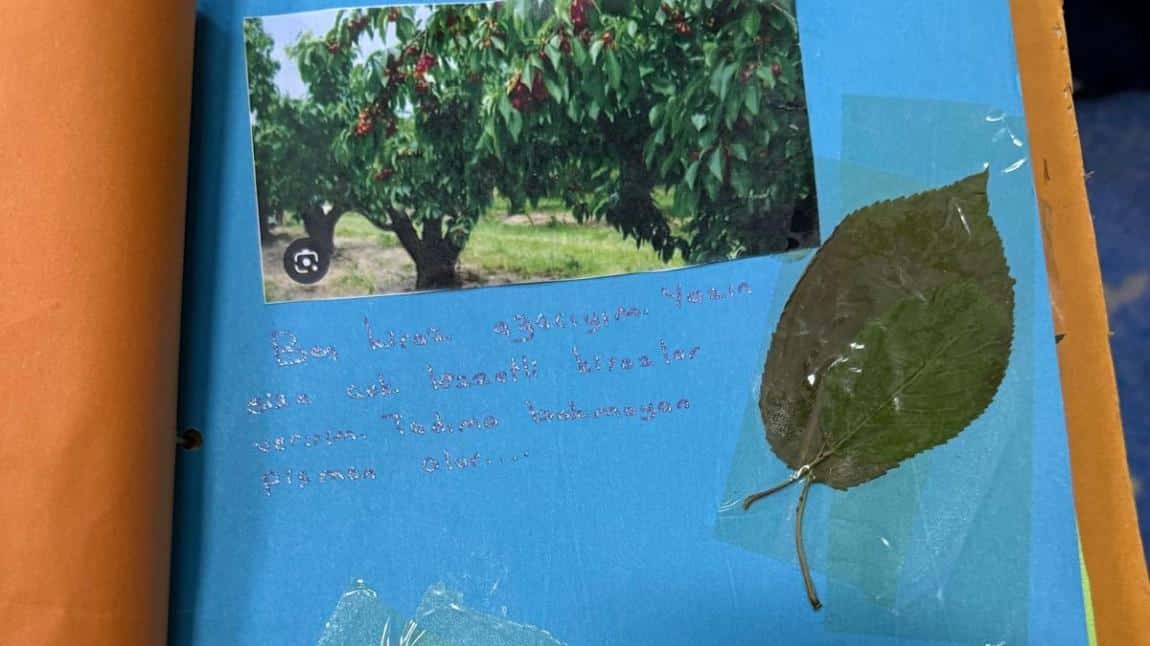 Ben kiraz ağacıyım. Yazın
size çok lezzetli kirazlar
veririm. Tadıma bakmayan
pişman olur....